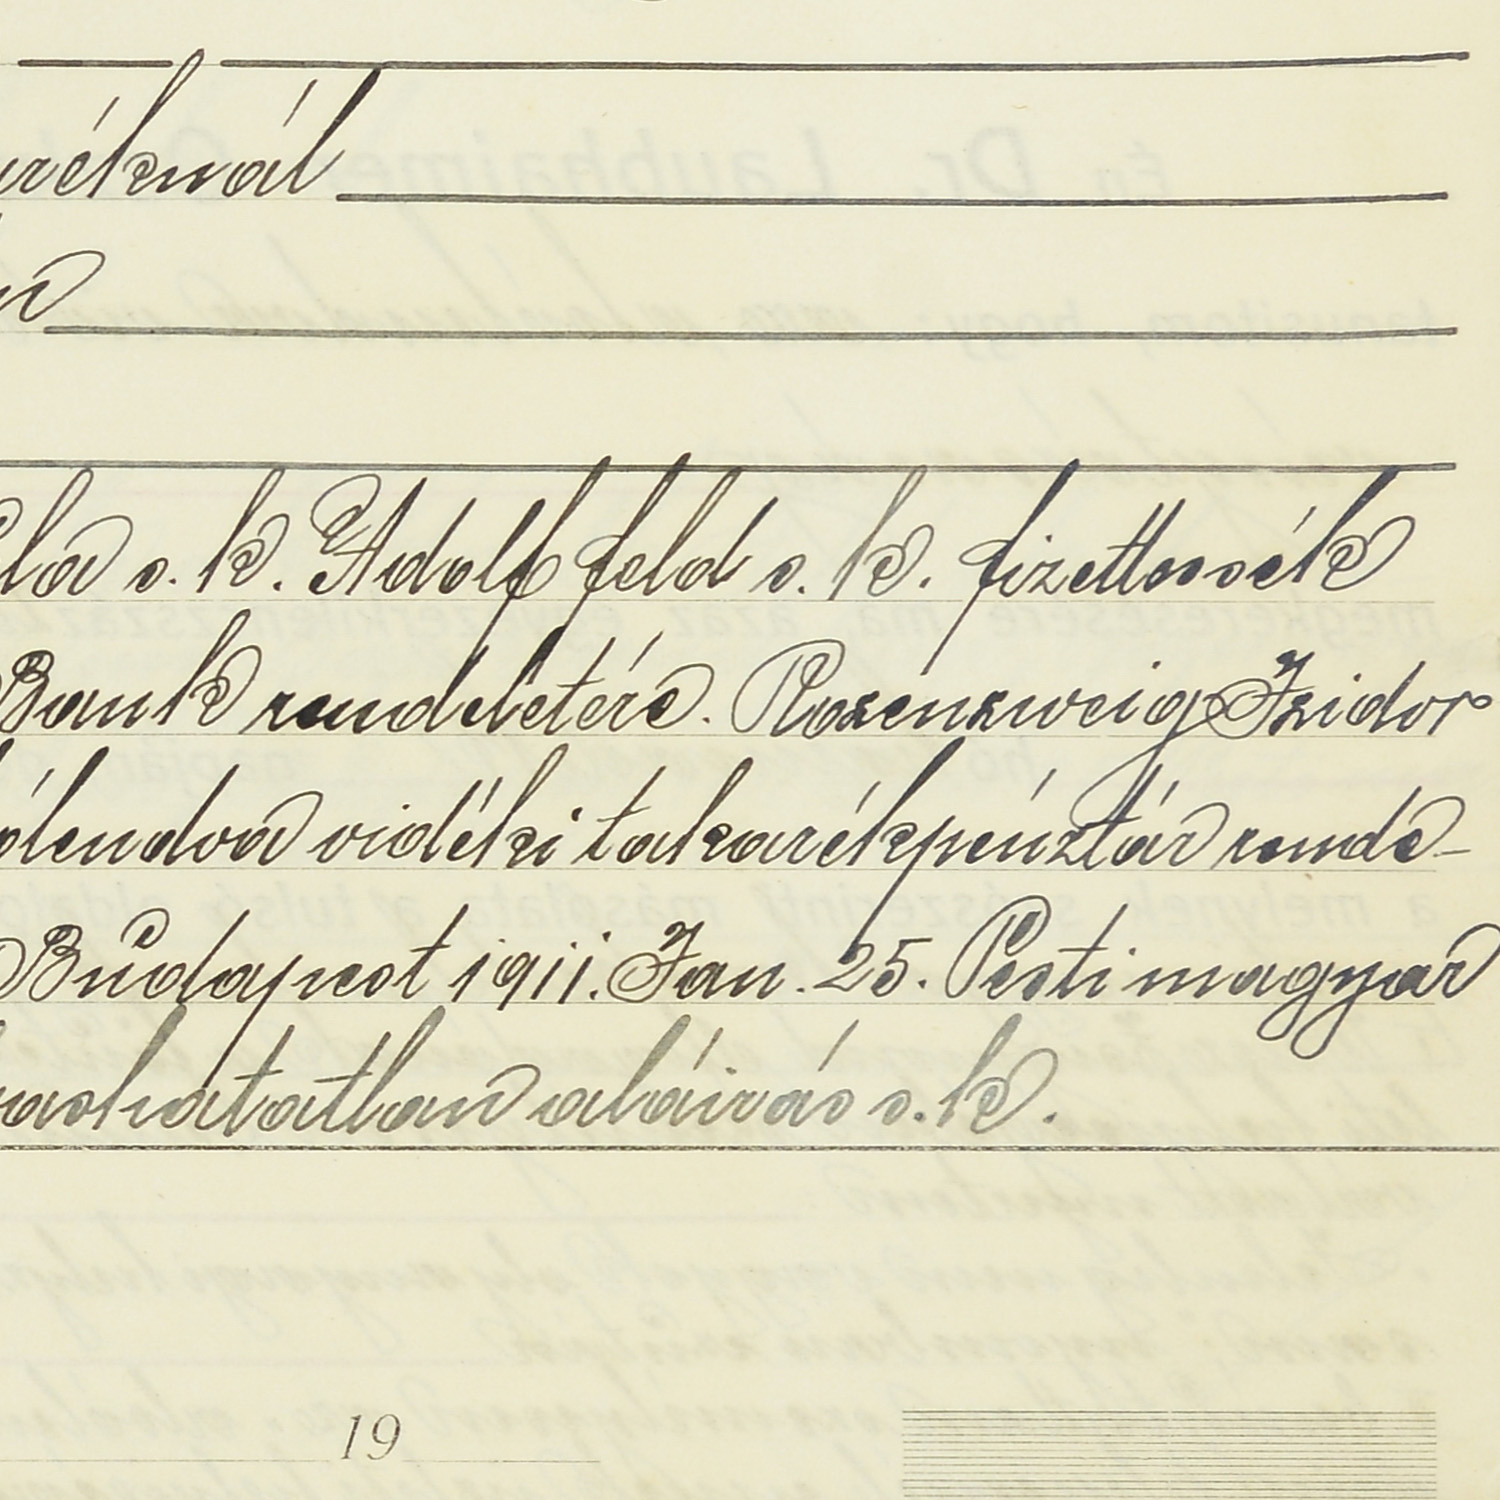 réknál
la s. k. Adolf feld s. k. fizettessék
Bank rendeletére. Rosenzweig Izidor
lendva vidéki takarékpénztár rende-
Budapest 1911. Jan. 25. Pesti magyar
vashatatlan aláirás s. k.
19